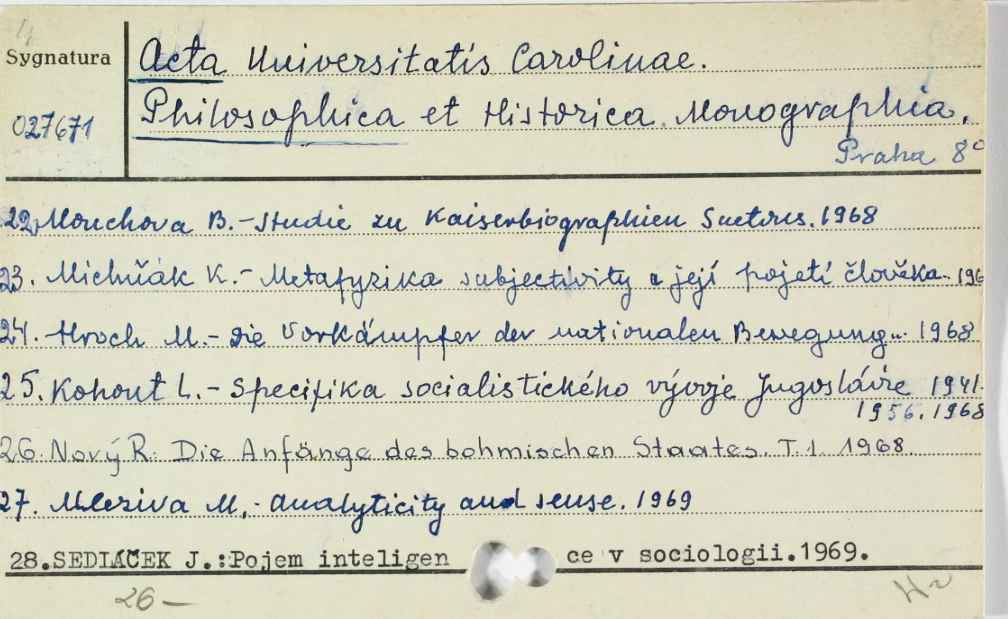 4
Sygnatura
Acta Universitatis Carolinae.
027671
Philosophica et Historica. Monographia.
Praha 8°
22. Mouchova B. - Studie zu Kaiserbiographien Suetons. 1968
23. Michňák K. - Metafyzika subjectivity a její pojetí člověka. 196
24. Hroch M. - Die Vorkämpfer der nationalen Bewegung... 1968
25. Kohout L. - Specifika socialistického vývoje Jugoslávie 1941-
1956. 1968
26. Nový R. Die Anfänge des bohmischen Staates. T. 1. 1968.
27. Mleziva M. - Analyticity and sense. 1969
28.SEDLÁČEK J.:Pojem inteligen ce v sociologii.1969.
26 —